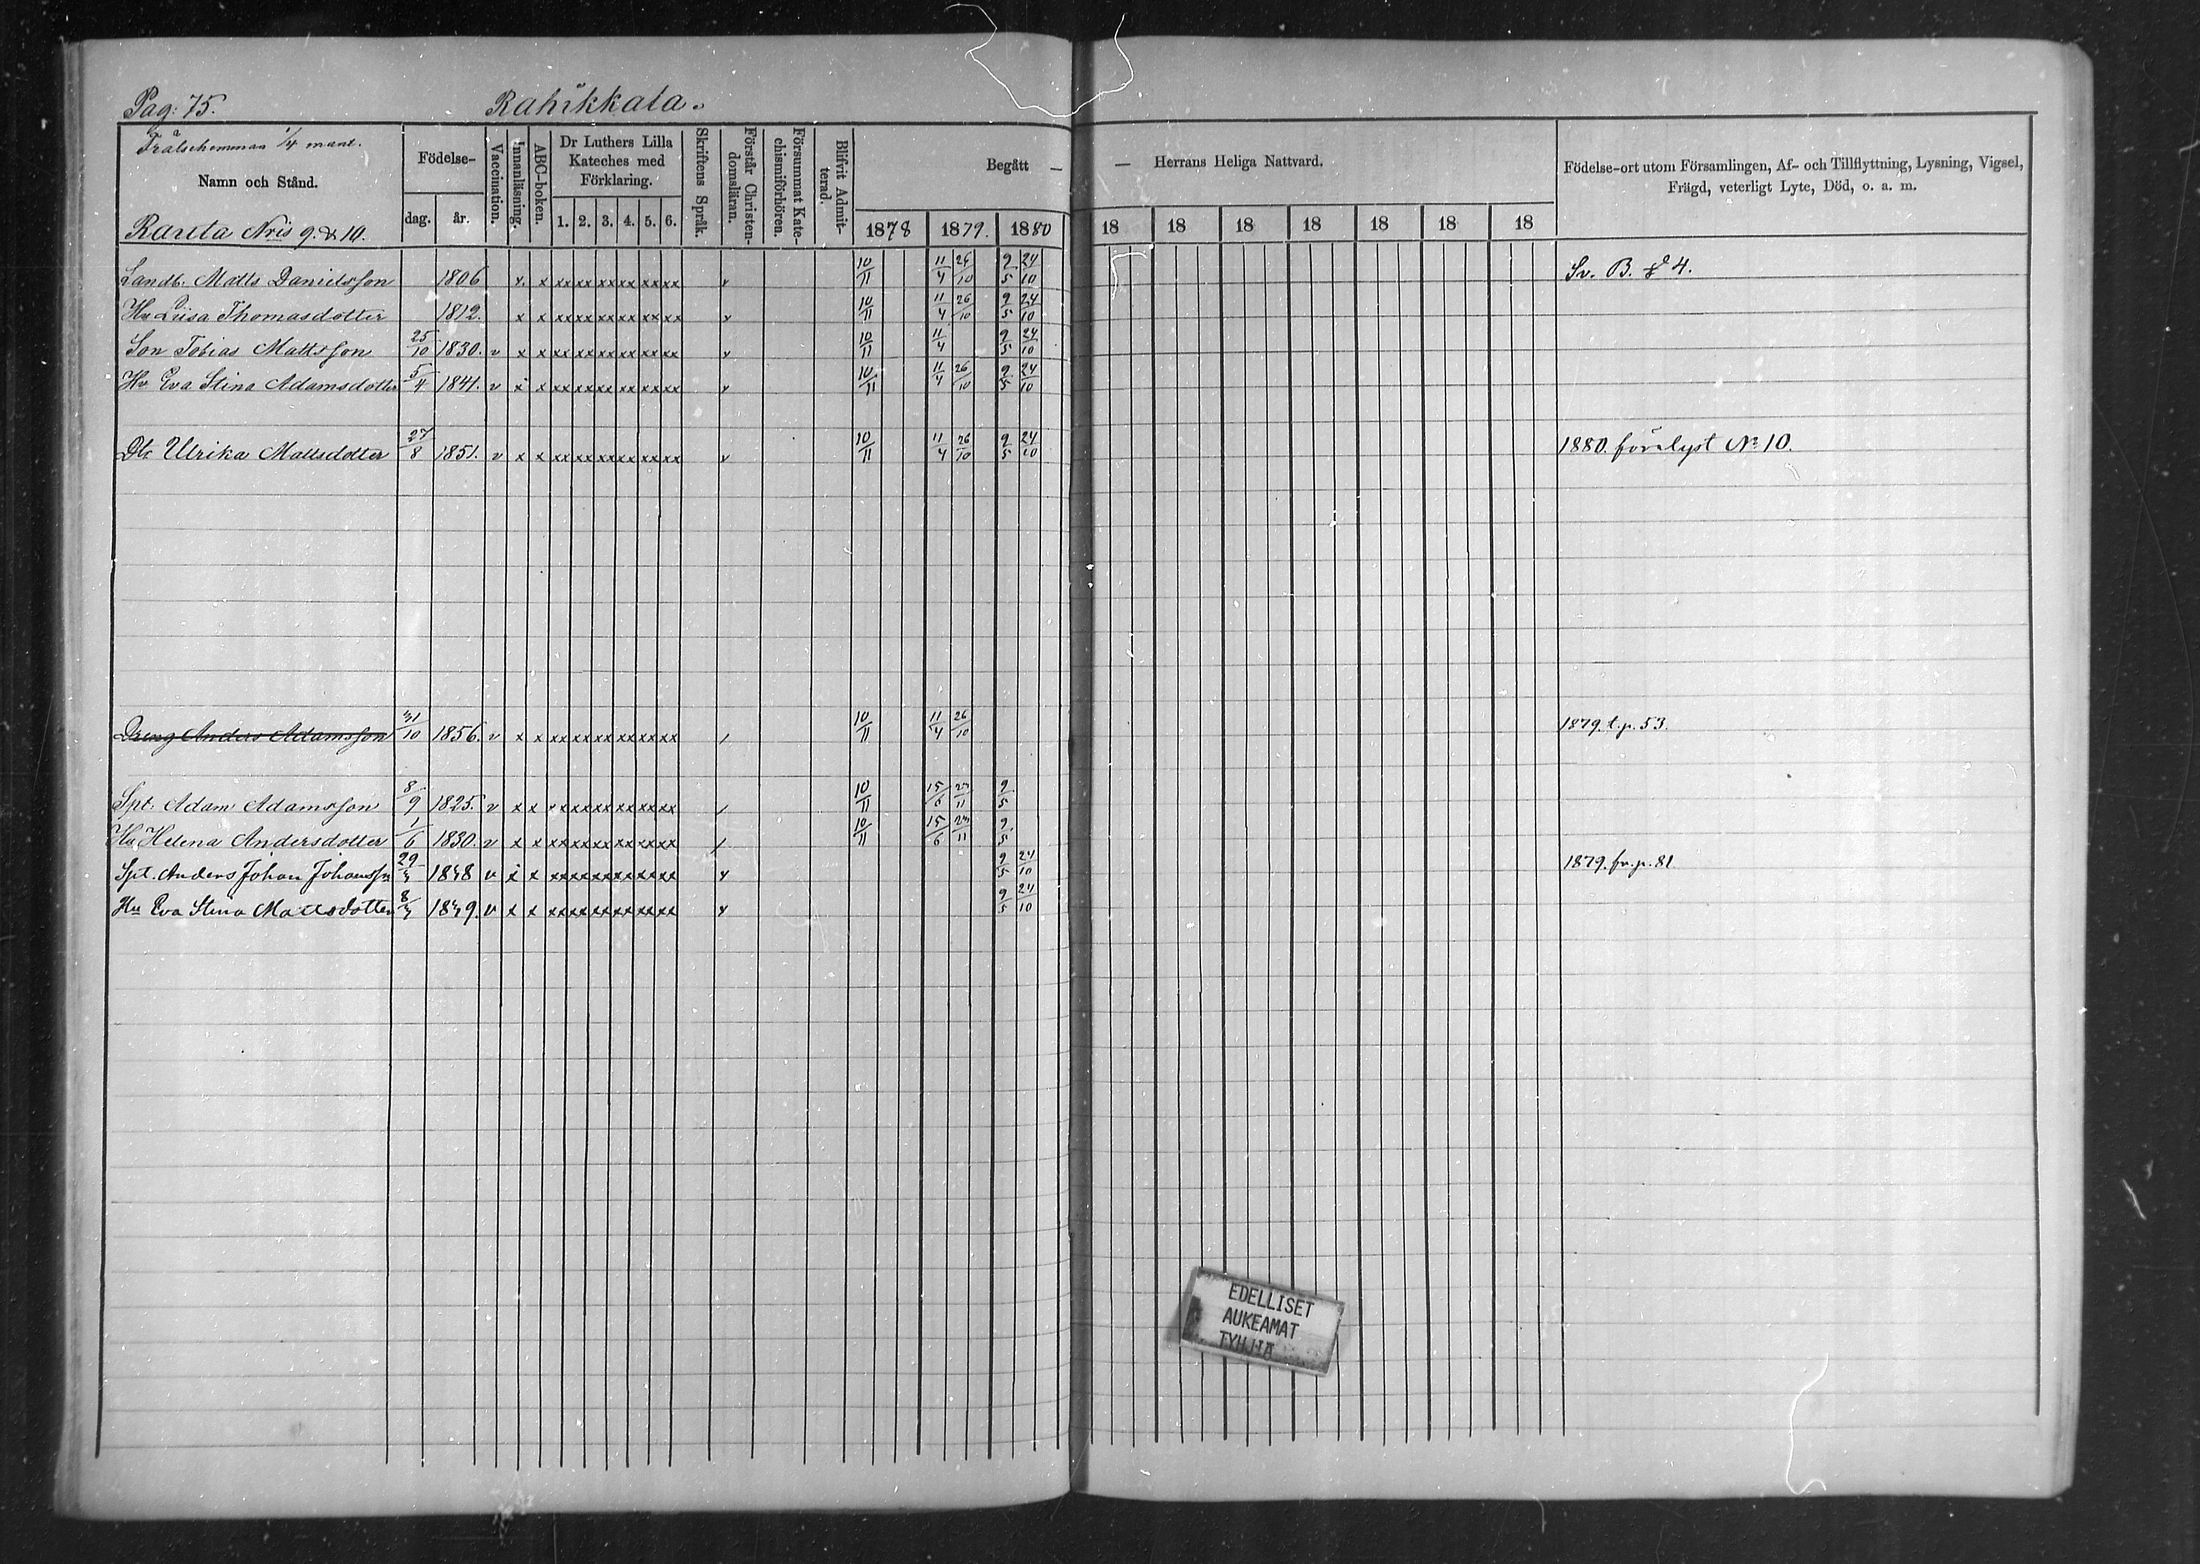 Pag: 75. Rahikkala.
Frälsehemman 1/4 mant.
Namn och Stånd.
Rauta Nris 9. & 10.
Födelse-
dag. år.
Vaccination.
Innanläsning.
ABC-boken.
Dr Luthers Lilla Kateches med Förklaring.
1. 2. 3. 4. 5. 6.
Skriftens Språk.
Förstår Christendomsläran.
Försummat Katechismiförhören.
Blifvit Admitterad.
Begått — — Herrans Heliga Nattvard.
1878 1879. 1880 18 18 18 18 18 18 18
Födelse-ort utom Församlingen, Af- och Tillflyttning, Lysning, Vigsel,
Frägd, veterligt Lyte, Död, o. a. m.
Landb. Matts Danielsson 1806 x x xx xx xx xx xx xx v 10/11 11/4 26/10 9/5 24/10 Sv. B. § 4.
Hu Liisa Thomasdotter 1812. x x xx xx xx xx xx xx v 10/11 11/4 26/10 9/5 24/10
Son Tobias Mattsson 25/10 1830. v x x xx xx xx xx xx xx v 10/11 11/4 9/5 24/10
Hu Eva Stina Adamsdotter 5/4 1841. v x x xx xx xx xx xx xx v 10/11 11/4 26/10 9/5 24/10
Dtr Ulrika Mattsdotter 27/8 1851. v x x xx xx xx xx xx xx v 10/11 11/4 26/10 9/5 24/10 1880. för lyst No 10.
Dreng Anders Adamsson 31/10 1856. v x x xx xx xx xx xx xx / 10/11 11/4 26/10 1879. t. p. 53.
Spt. Adam Adamsson 8/9 1825. v x x xx xx xx xx xx xx / 10/11 15/6 23/11 9/5
Hu Helena Andersdotter 1/6 1830. v x x xx xx xx xx xx xx / 10/11 15/6 23/11 9/5
Spt. Anders Johan Johansson 29/4 1848 v x x xx xx xx xx xx xx v 9/5 24/10 1879. fr. p. 81
Hu Eva Stina Mattsdotter 8/4 1849. v x x xx xx xx xx xx xx v 9/5 24/10
EDELLISET
AUKEAMAT
TYHJIÄ